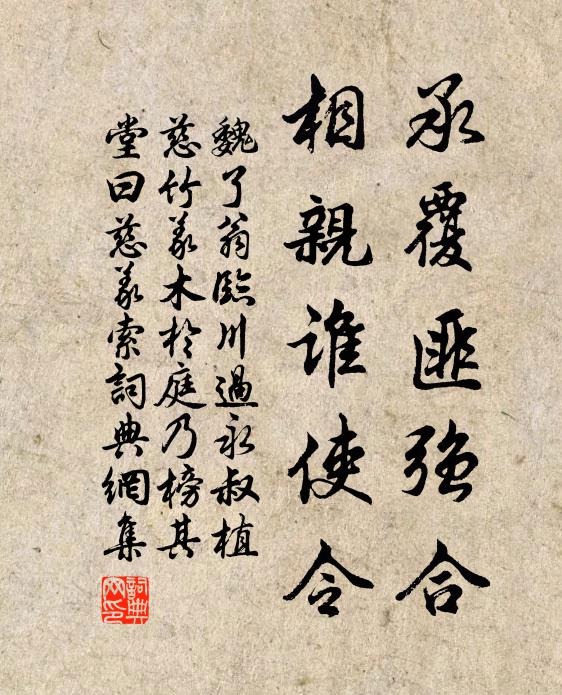 承覆匪強合
相親誰使令
魏了翁臨川過永叔植
慈竹義木於庭乃榜其
堂曰慈義索詞典網集
詞典网印